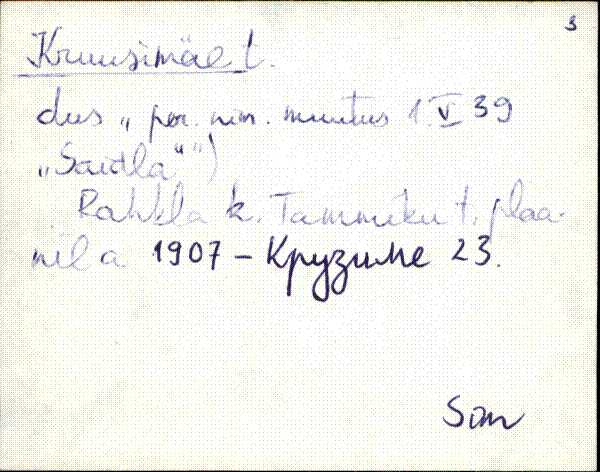 3
Kruusimäe t.
dus „per. nim. muutus 1. V 39
„Saidla“”)
Rahkla k. Tammiku t. plaa-
nil a 1907 – Крузиме 23.
Som